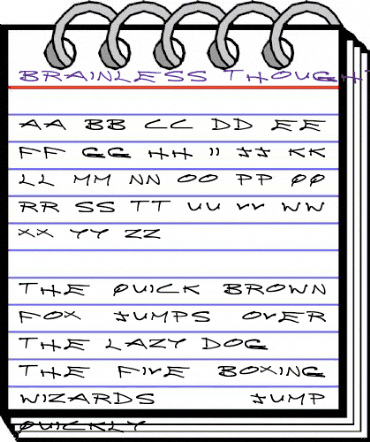 BRAINLESS THOUGHT
AA BB CC DD EE
FF GG HH II JJ KK
LL MM NN OO PP QQ
RR SS TT UU VV WW
XX YY ZZ
THE QUICK BROWN
FOX JUMPS OVER
THE LAZY DOG
THE FIVE BOXING
WIZARDS JUMP
QUICKLY